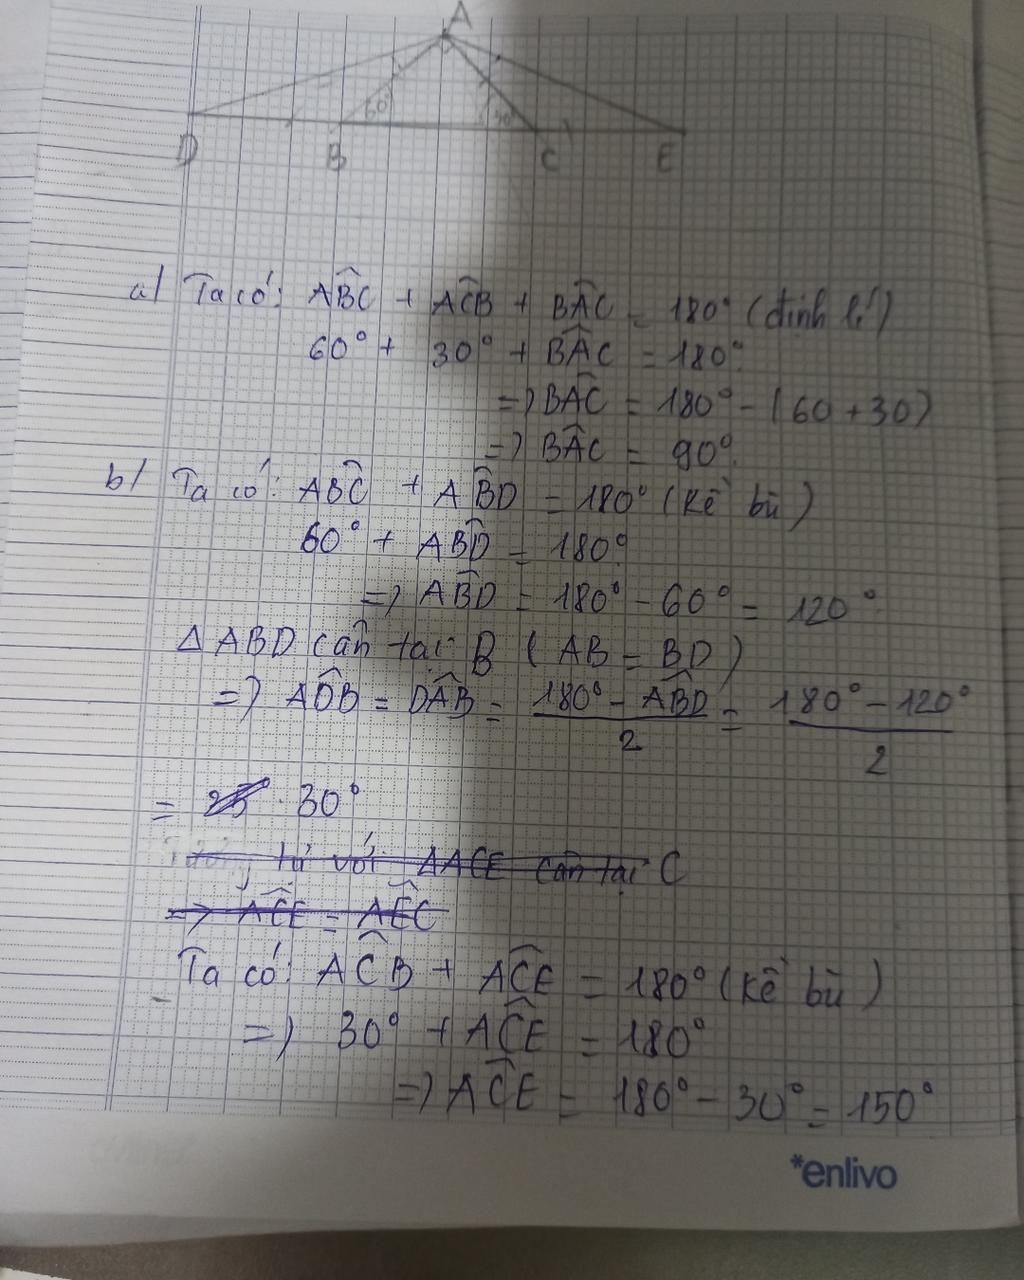 A
60°
30°
D B C E
a/ Ta có: ABC + ACB + BAC = 180° (định lí)
60° + 30° + BAC = 180°
=> BAC = 180° - (60 + 30)
=> BAC = 90°
b/ Ta có: ABC + ABD = 180° (kề bù)
60° + ABD = 180°
=> ABD = 180° - 60° = 120°
Δ ABD cân tại B (AB = BD)
=> ADB = DAB = (180° - ABD)/2 = (180° - 120°)/2
= 30°
tự với ΔACE cân tại C
=> ACE = AEC
Ta có: ACB + ACE = 180° (kề bù)
=> 30° + ACE = 180°
=> ACE = 180° - 30° = 150°
*enlivo